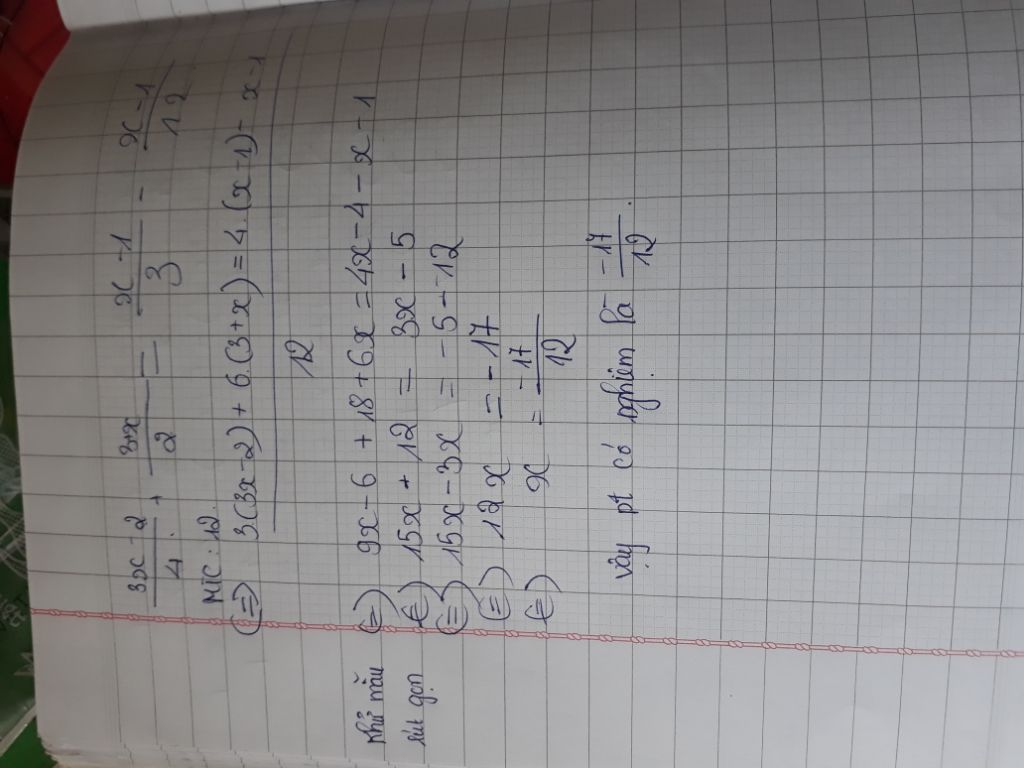 3x - 2 / 4 + 3+x / 2 = x - 1 / 3 - x - 1 / 12
MTC : 12.
(=) 3(3x-2) + 6.(3+x) = 4.(x-1) - x - 1 / 12
Khử mẫu (=) 9x - 6 + 18 + 6x = 4x - 4 - x - 1
rút gọn (=) 15x + 12 = 3x - 5
(=) 15x - 3x = - 5 - 12
(=) 12x = - 17
(=) x = -17 / 12
Vậy pt có nghiệm là -17 / 12.